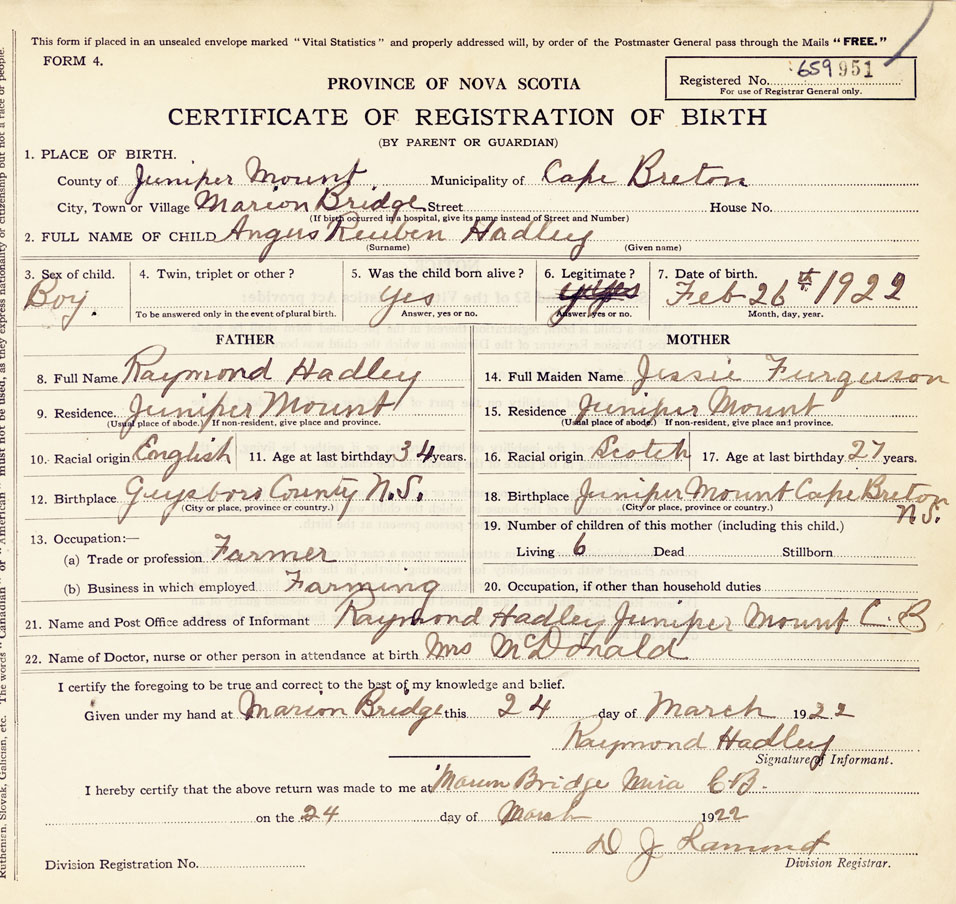 This form if placed in an unsealed envelope marked "Vital Statistics" and properly addressed will, by order of the Postmaster General pass through the Mails "FREE."
FORM 4.
Registered No. 659951
For use of Registrar General only.
PROVINCE OF NOVA SCOTIA
CERTIFICATE OF REGISTRATION OF BIRTH
(BY PARENT OR GUARDIAN)
1. PLACE OF BIRTH.
County of Juniper Mount Municipality of Cape Breton
City, Town or Village Marion Bridge Street House No.
(If birth occurred in a hospital, give its name instead of Street and Number)
2. FULL NAME OF CHILD Angus Reuben Hadley
(Surname) (Given name)
3. Sex of child. 4. Twin, triplet or other? 5. Was the child born alive? 6. Legitimate? 7. Date of birth.
Boy. Yes yes Feb 26th 1922
To be answered only in the event of plural birth. Answer, yes or no. Answer, yes or no. Month, day, year.
FATHER MOTHER
8. Full Name Raymond Hadley 14. Full Maiden Name Jessie Furguson
9. Residence. Juniper Mount 15. Residence Juniper Mount
(Usual place of abode.) If non-resident, give place and province. (Usual place of abode.) If non-resident, give place and province.
10. Racial origin English 11. Age at last birthday 34 years. 16. Racial origin Scotch 17. Age at last birthday 27 years.
12. Birthplace Guysboro County N.S. 18. Birthplace Juniper Mount Cape Breton N.S.
(City or place, province or country.) (City or place, province or country.)
13. Occupation:— 19. Number of children of this mother (including this child.)
(a) Trade or profession Farmer Living 6 Dead Stillborn
(b) Business in which employed Farming 20. Occupation, if other than household duties
21. Name and Post Office address of Informant Raymond Hadley Juniper Mount C. B
22. Name of Doctor, nurse or other person in attendance at birth Mrs McDonald
I certify the foregoing to be true and correct to the best of my knowledge and belief.
Given under my hand at Marion Bridge this 24 day of March 1922
Raymond Hadley
Signature of Informant.
I hereby certify that the above return was made to me at Marion Bridge Mira C.B.
on the 24 day of March 1922
D J Lamond
Division Registration No. Division Registrar.
Ruthenian, Slovak, Galician, etc. The words "Canadian" or "American" must not be used, as they express nationality or citizenship but not a race or people.